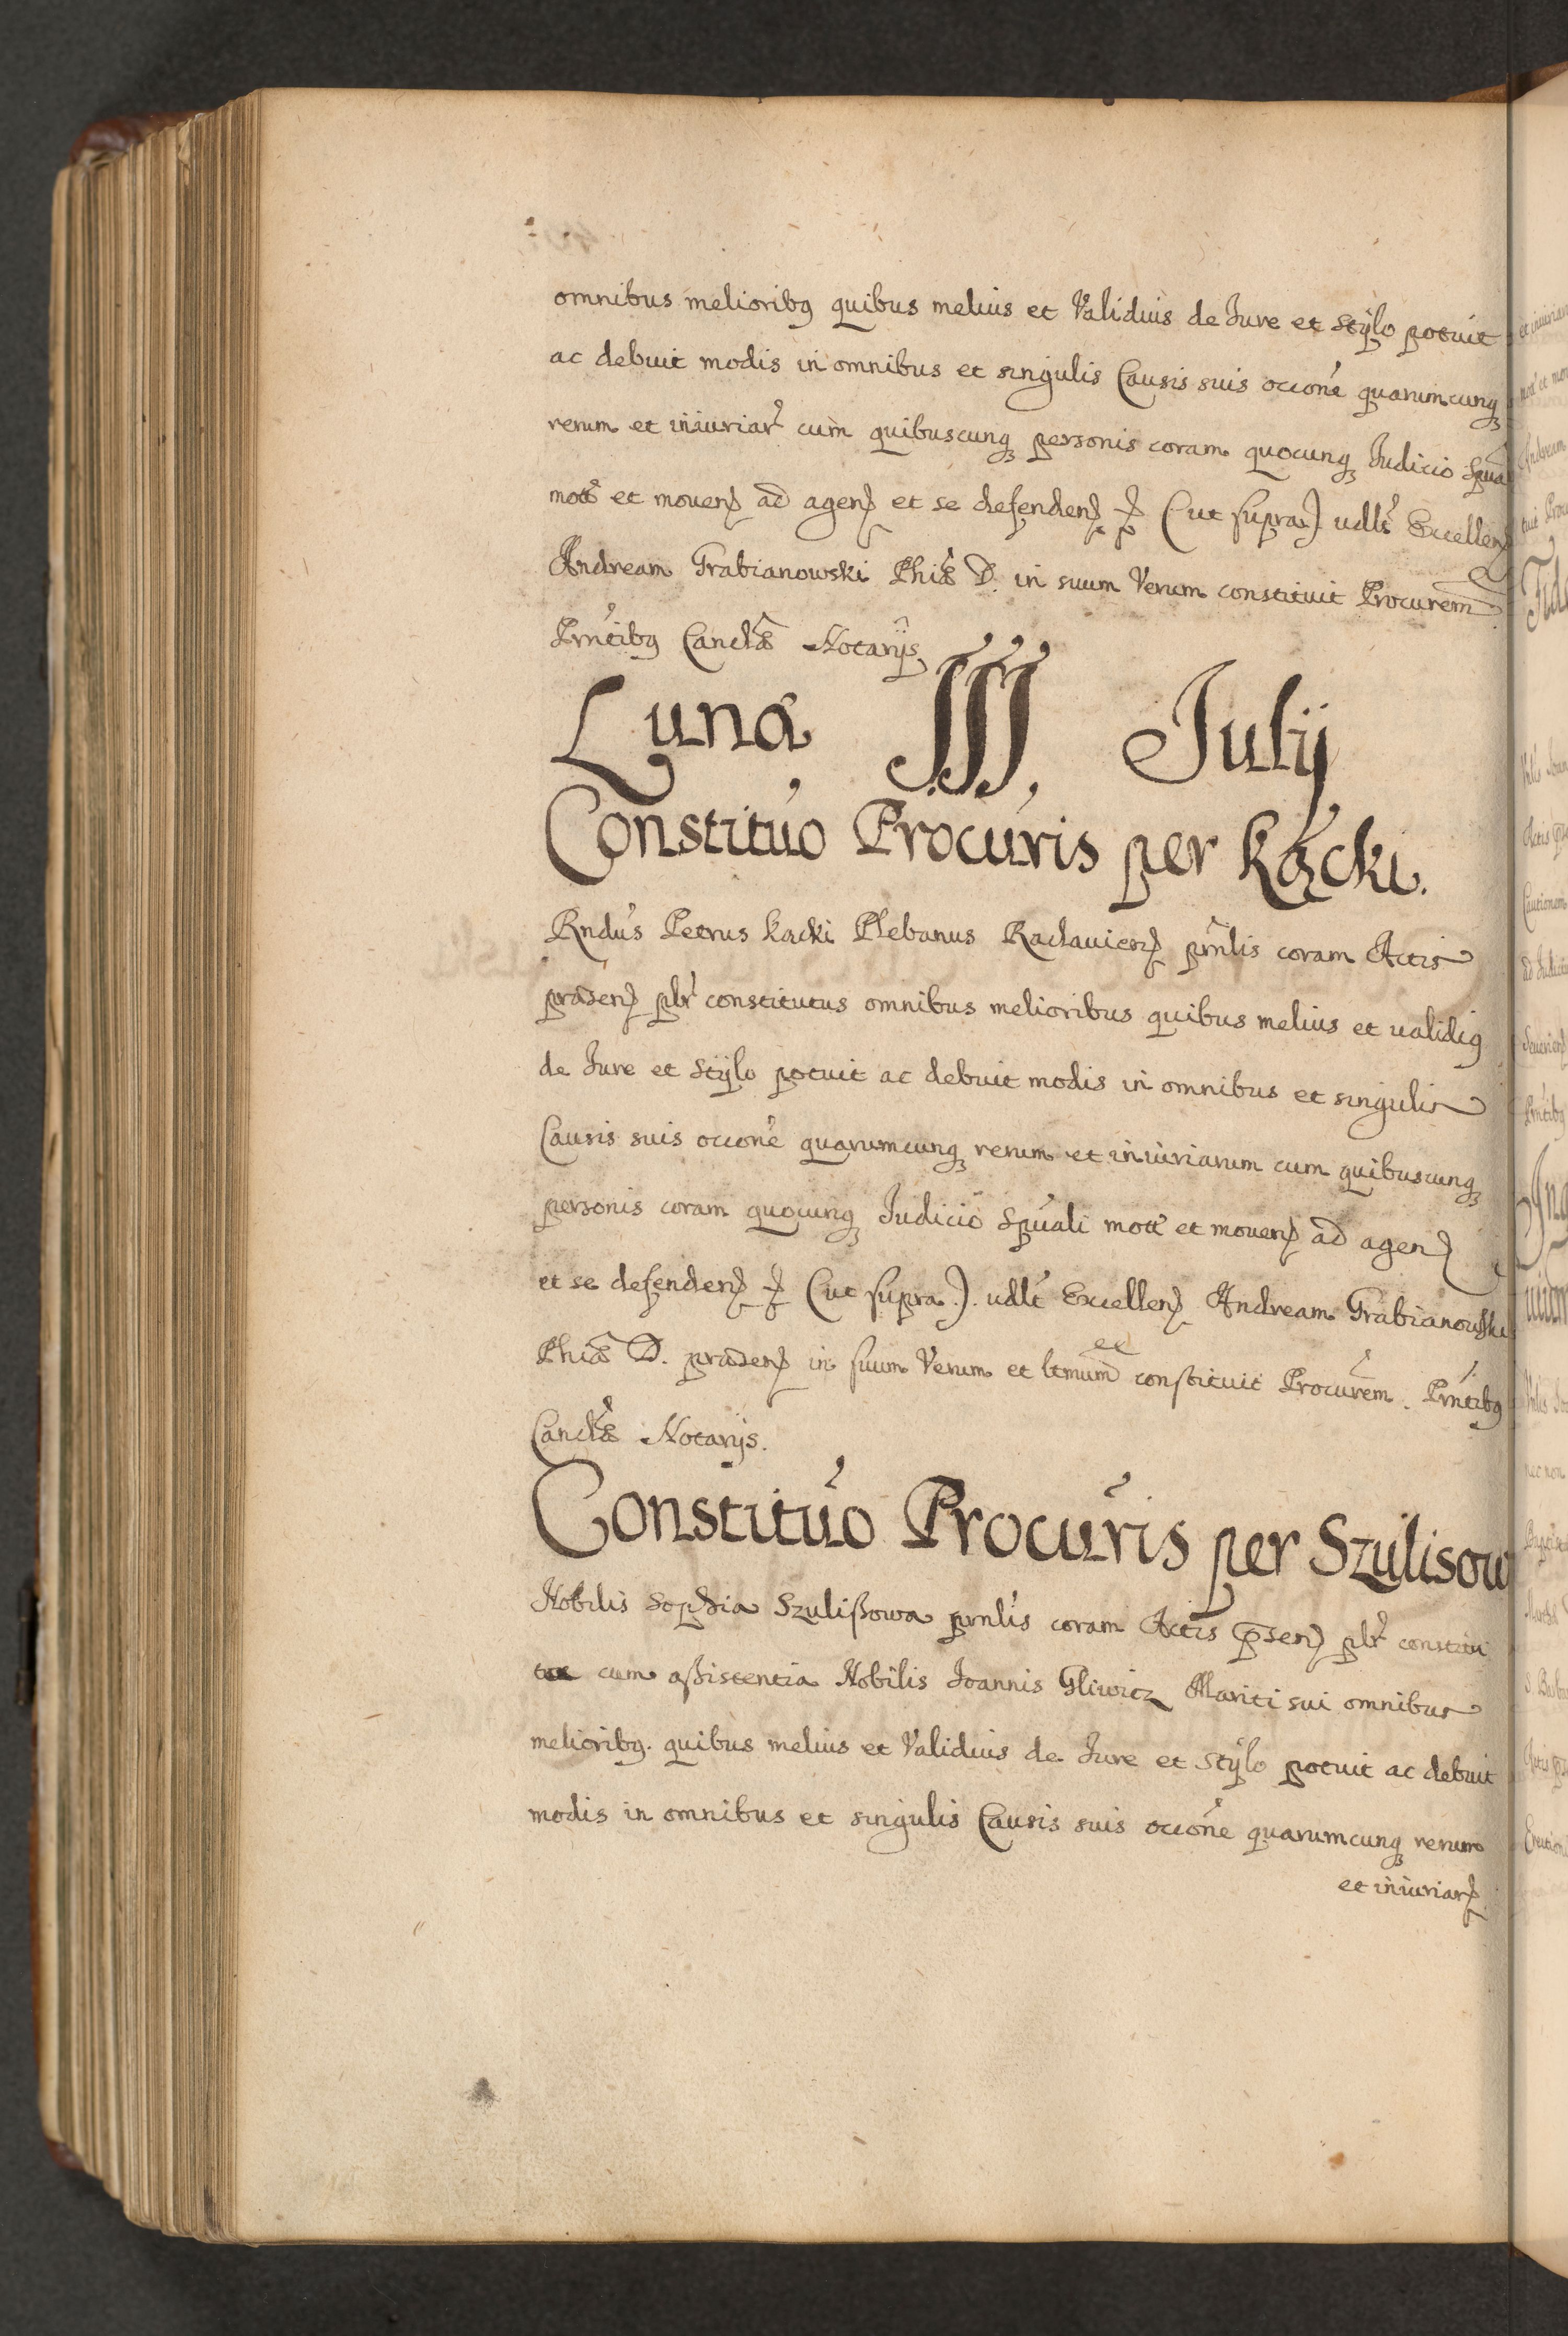 omnibus melioribꝫ quibus melius et Validius de Iure et stÿlo potuit
ac debuit modis in omnibus et singulis Causis suis occone quarumcunqꝫ
rerum et iniuriar cum quibuscunqꝫ personis coram quocunqꝫ Iudicio Spua
mott et mouen ad agen et se defenden (ut supra) udlt Excellen
Andream Grabianowski Phiæ D. in suum Verum constituit Procurem
Prntibꝫ Canclæ Notarijs
Luna III Iulij
Constituo Procuris per Kącki.
Rndus Petrus Kacki Plebanus Raclauicen prnlis coram Actis
præsen plr constitutus omnibus melioribus quibus melius et ualidiꝫ
de Iure et stÿlo potuit ac debuit modis in omnibus et singulis
Causis suis occone quarumcunqꝫ rerum et iniuriarum cum quibuscunqꝫ
personis coram quocunqꝫ Iudicio Spuali mott et mouen ad agen
et se defenden (ut supra). udlt Excellen Andream Grabianowski
Phiæ D. præsen in suum Verum et ltmum constituit Procurem. Prntibꝫ
Canclæ Notarijs.
Constituo Procuris per Szulisow
Nobilis Sophia Szulißowa prnlis coram Actis psen plr constitu
ta cum aßistentia Nobilis Ioannis Gliwicz Mariti sui omnibus
melioribꝫ. quibus melius et Validius de Iure et stÿlo potuit ac debuit
modis in omnibus et singulis Causis suis occone quarumcunqꝫ rerum
et iniuriar